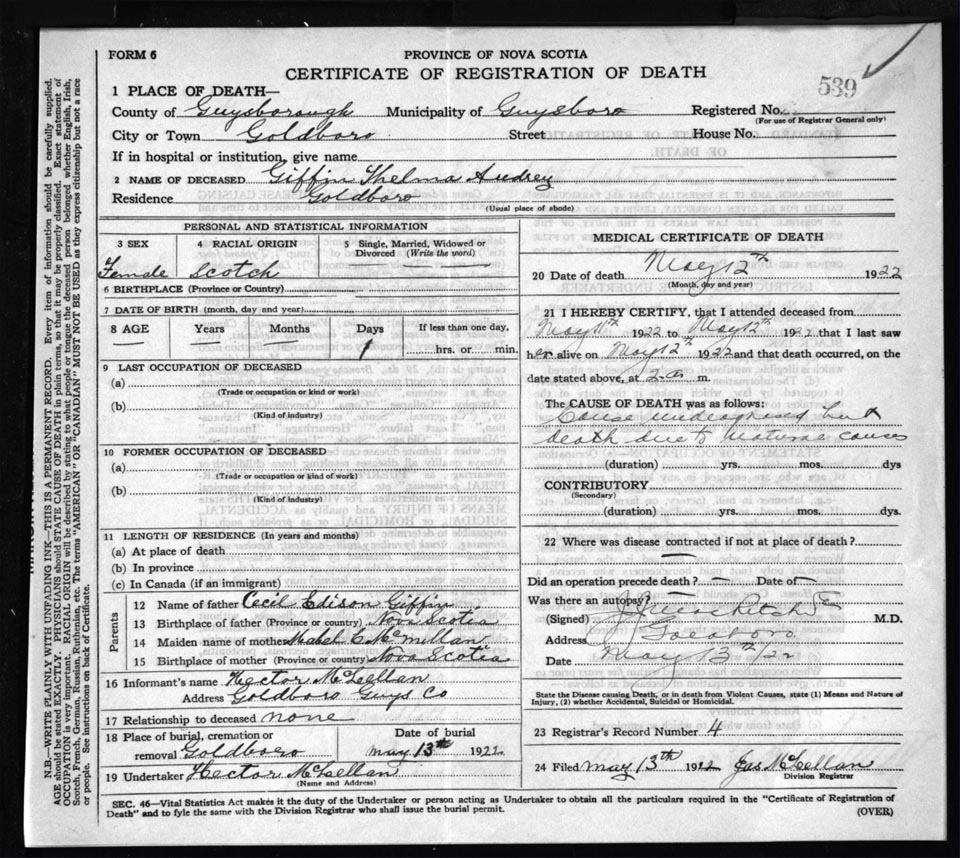 FORM 6
PROVINCE OF NOVA SCOTIA
CERTIFICATE OF REGISTRATION OF DEATH
539
1 PLACE OF DEATH—
County of Guysborough Municipality of Guysboro Registered No.
(For use of Registrar General only)
City or Town Goldboro Street House No.
If in hospital or institution, give name
2 NAME OF DECEASED Giffin Thelma Audrey
Residence Goldboro
(Usual place of abode)
PERSONAL AND STATISTICAL INFORMATION
3 SEX 4 RACIAL ORIGIN 5 Single, Married, Widowed or Divorced (Write the word)
Female Scotch
6 BIRTHPLACE (Province or Country)
7 DATE OF BIRTH (month, day and year)
8 AGE Years Months Days If less than one day,
— — 1 hrs. or min.
9 LAST OCCUPATION OF DECEASED
(a)
(Trade or occupation or kind or work)
(b)
(Kind of industry)
10 FORMER OCCUPATION OF DECEASED
(a)
(Trade or occupation or kind of work)
(b)
(Kind of industry)
11 LENGTH OF RESIDENCE (In years and months)
(a) At place of death
(b) In province
(c) In Canada (if an immigrant)
Parents
12 Name of father Cecil Edison Giffin
13 Birthplace of father (Province or country) Nova Scotia
14 Maiden name of mother Mabel C McMillan
15 Birthplace of mother (Province or country) Nova Scotia
16 Informant's name Hector McLellan
Address Goldboro Guys Co
17 Relationship to deceased none
18 Place of burial, cremation or removal Goldboro
Date of burial
May 13th 1922
19 Undertaker Hector McLellan
(Name and Address)
MEDICAL CERTIFICATE OF DEATH
20 Date of death May 12th 1922
(Month, day and year)
21 I HEREBY CERTIFY, that I attended deceased from
May 11th 1922 to May 12th 1922 that I last saw
her alive on May 12th 1922 and that death occurred, on the
date stated above, at 2 a m.
The CAUSE OF DEATH was as follows:
Cause undiagnised but
death due to natural causes
(duration) yrs. mos. dys
CONTRIBUTORY
(Secondary)
(duration) yrs. mos. dys.
22 Where was disease contracted if not at place of death?
—
Did an operation precede death? — Date of —
Was there an autopsy?
(Signed) M.D.
Address Goldboro
Date May 13th/22
State the Disease causing Death, or in death from Violent Causes, state (1) Means and Nature of
Injury, (2) whether Accidental, Suicidal or Homicidal.
23 Registrar's Record Number 4
24 Filed May 13th 1922 Jas McLellan
Division Registrar
SEC. 46—Vital Statistics Act makes it the duty of the Undertaker or person acting as Undertaker to obtain all the particulars required in the "Certificate of Registration of
Death" and to fyle the same with the Division Registrar who shall issue the burial permit.
(OVER)
N.B.—WRITE PLAINLY WITH UNFADING INK—THIS IS A PERMANENT RECORD. Every item of information should be carefully supplied.
AGE should be stated EXACTLY. PHYSICIANS should STATE CAUSE OF DEATH in plain terms, so that it may be properly classified. Exact statement of
OCCUPATION is very important. RACIAL ORIGIN will be described by stating to what people or tongue the deceased person belonged whether English, Irish,
Scotch, French, German, Russian, Ruthenian, etc. The terms "AMERICAN" OR "CANADIAN" MUST NOT BE USED as they express citizenship but not a race
or people. See instructions on back of Certificate.